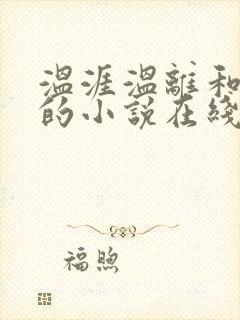 温涯温離和
的小説在綫
福煦